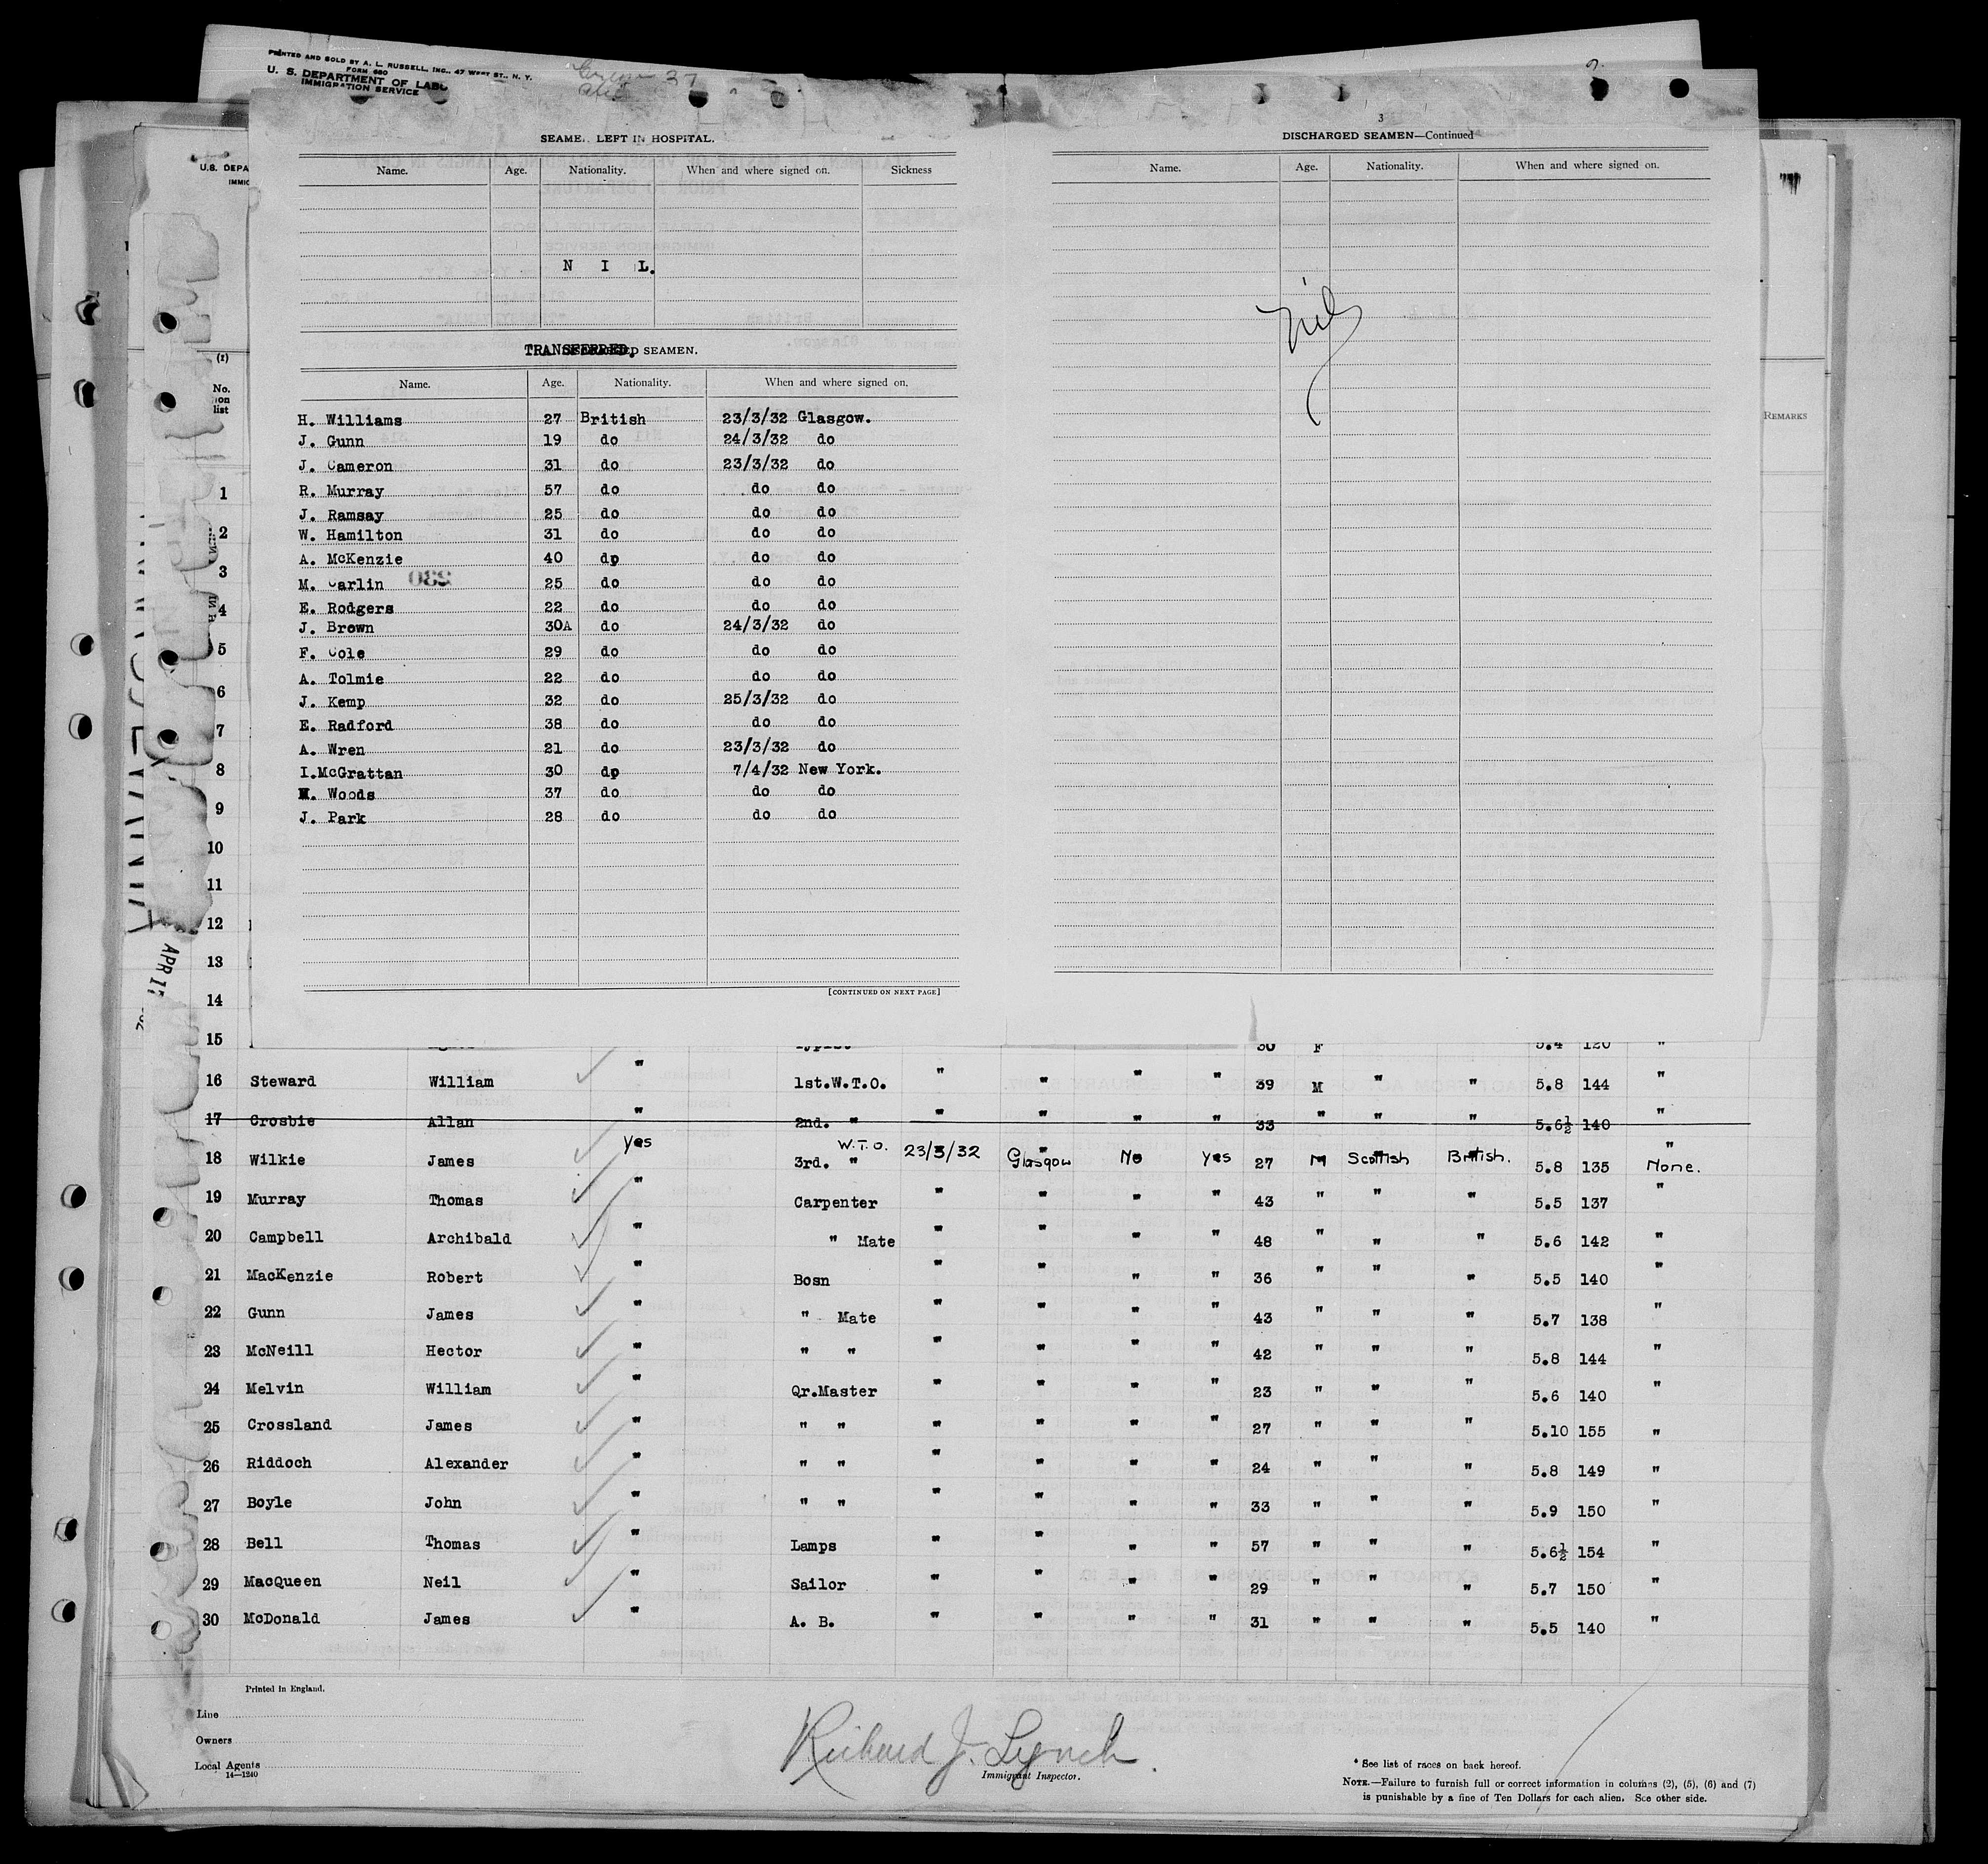 PRINTED AND SOLD BY A. L. RUSSELL, INC., 47 WEST ST., N. Y.
FORM 680
U. S. DEPARTMENT OF LABO
IMMIGRATION SERVICE
37
U.S. DEPA
IMMIG
(1)
No. on list
SEAME LEFT IN HOSPITAL.
Name. Age. Nationality. When and where signed on. Sickness
N I L.
TRANSFERRED. SEAMEN.
Name. Age. Nationality. When and where signed on.
H. Williams 27 British 23/3/32 Glasgow.
J. Gunn 19 do 24/3/32 do
J. Cameron 31 do 23/3/32 do
R. Murray 57 do do do
J. Ramsay 25 do do do
W. Hamilton 31 do do do
A. McKenzie 40 do do do
M. Carlin 25 do do do
E. Rodgers 22 do do do
J. Brown 30A do 24/3/32 do
F. Cole 29 do do do
A. Tolmie 22 do do do
J. Kemp 32 do 25/3/32 do
E. Radford 38 do do do
A. Wren 21 do 23/3/32 do
I.McGrattan 30 do 7/4/32 New York.
M. Woods 37 do do do
J. Park 28 do do do
[CONTINUED ON NEXT PAGE]
3
DISCHARGED SEAMEN—Continued
Name. Age. Nationality. When and where signed on.
Nil
REMARKS
1
2
3
4
5
6
7
8
9
10
11
12
13
14
APR 1
15 Typist 30 F 5.4 120 "
16 Steward William " 1st.W.T.O. " " " " 39 M " " 5.8 144 "
17 Crosbie Allan " 2nd. " " " " " 33 " " " 5.6½ 140 "
18 Wilkie James yes 3rd. " W.T.O. 23/3/32 Glasgow No yes 27 M Scottish British. 5.8 135 None.
19 Murray Thomas " Carpenter " " " " 43 " " " 5.5 137 "
20 Campbell Archibald " " Mate " " " " 48 " " " 5.6 142 "
21 MacKenzie Robert " Bosn " " " " 36 " " " 5.5 140 "
22 Gunn James " " Mate " " " " 43 " " " 5.7 138 "
23 McNeill Hector " " " " " " " 42 " " " 5.8 144 "
24 Melvin William " Qr.Master " " " " 23 " " " 5.6 140 "
25 Crossland James " " " " " " " 27 " " " 5.10 155 "
26 Riddoch Alexander " " " " " " " 24 " " " 5.8 149 "
27 Boyle John " " " " " " " 33 " " " 5.9 150 "
28 Bell Thomas " Lamps " " " " 57 " " " 5.6½ 154 "
29 MacQueen Neil " Sailor " " " " 29 " " " 5.7 150 "
30 McDonald James " A. B. " " " " 31 " " " 5.5 140 "
Printed in England.
Line
Owners
Local Agents
14—1240
Richard J. Lynch
Immigrant Inspector.
* See list of races on back hereof.
NOTE.—Failure to furnish full or correct information in columns (2), (5), (6) and (7)
is punishable by a fine of Ten Dollars for each alien. See other side.